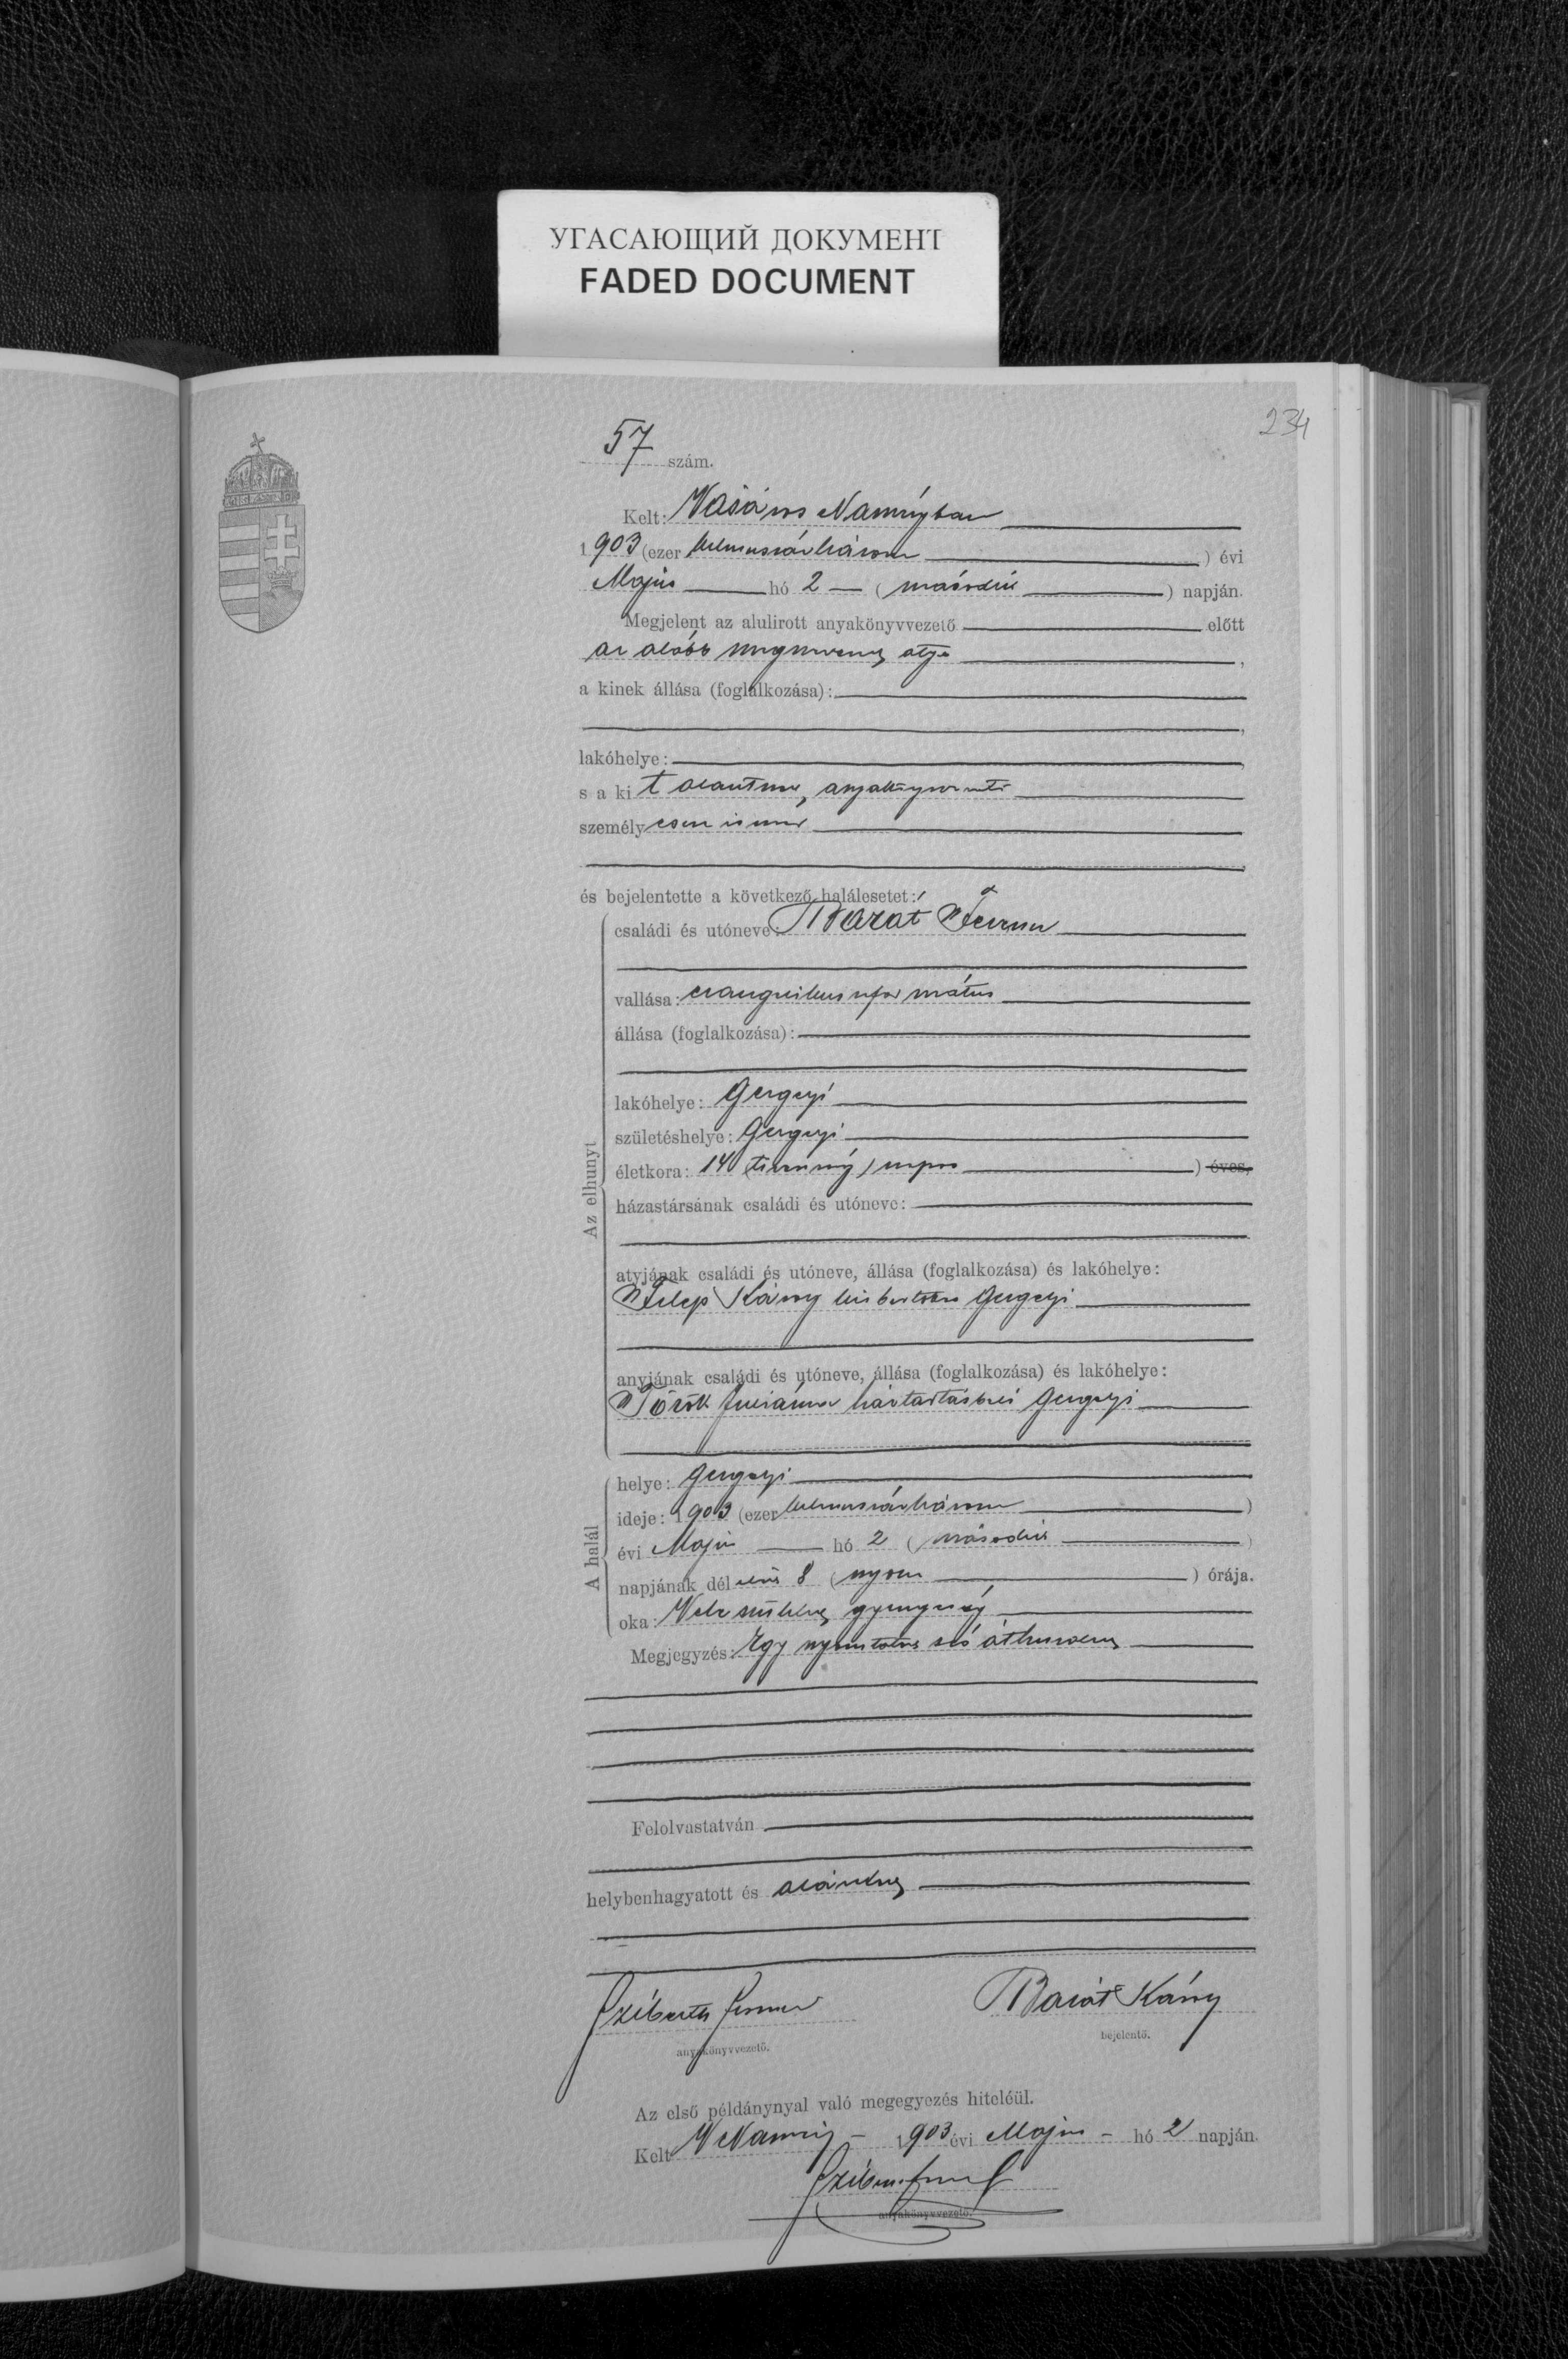 УГАСАЮЩИЙ ДОКУМЕНТ
FADED DOCUMENT
234
57 szám.
Kelt: Vásáros Naményban
1903 (ezer kilenczszázhárom) évi
Május hó 2 (második) napján.
Megjelent az alulirott anyakönyvvezető előtt
az alább megnevezett atyja,
a kinek állása (foglalkozása):
lakóhelye:
s a ki t alantirott, anyakönyvvezető
személyesen ismer
és bejelentette a következő halálesetet:
családi és utóneve: Barát Ferencz
vallása: evangelikus református
állása (foglalkozása):
lakóhelye: Gergelyi
születéshelye: Gergelyi
életkora: 14 (tizennégy) napos) éves,
házastársának családi és utóneve:
atyjának családi és utóneve, állása (foglalkozása) és lakóhelye:
Filep Károly kisbirtokos Gergelyi
anyjának családi és utóneve, állása (foglalkozása) és lakóhelye:
Török Juliánna háztartásbeli Gergelyi
Az elhunyt
helye: Gergelyi
ideje: 1903 (ezer kilenczszázhárom)
évi Május hó 2 (második)
napjának délelőtt 8 (nyolcz) órája.
oka: Vele született gyengeség
A halál
Megjegyzés: Egy nyomtatott szó áthúzva
Felolvastatván
helybenhagyatott és aláiratott
Barát Károly
anyakönyvvezető.
bejelentő.
Az első példánynyal való megegyezés hiteléül.
Kelt V Namény 1903 évi Május hó 2 napján.
anyakönyvvezető.